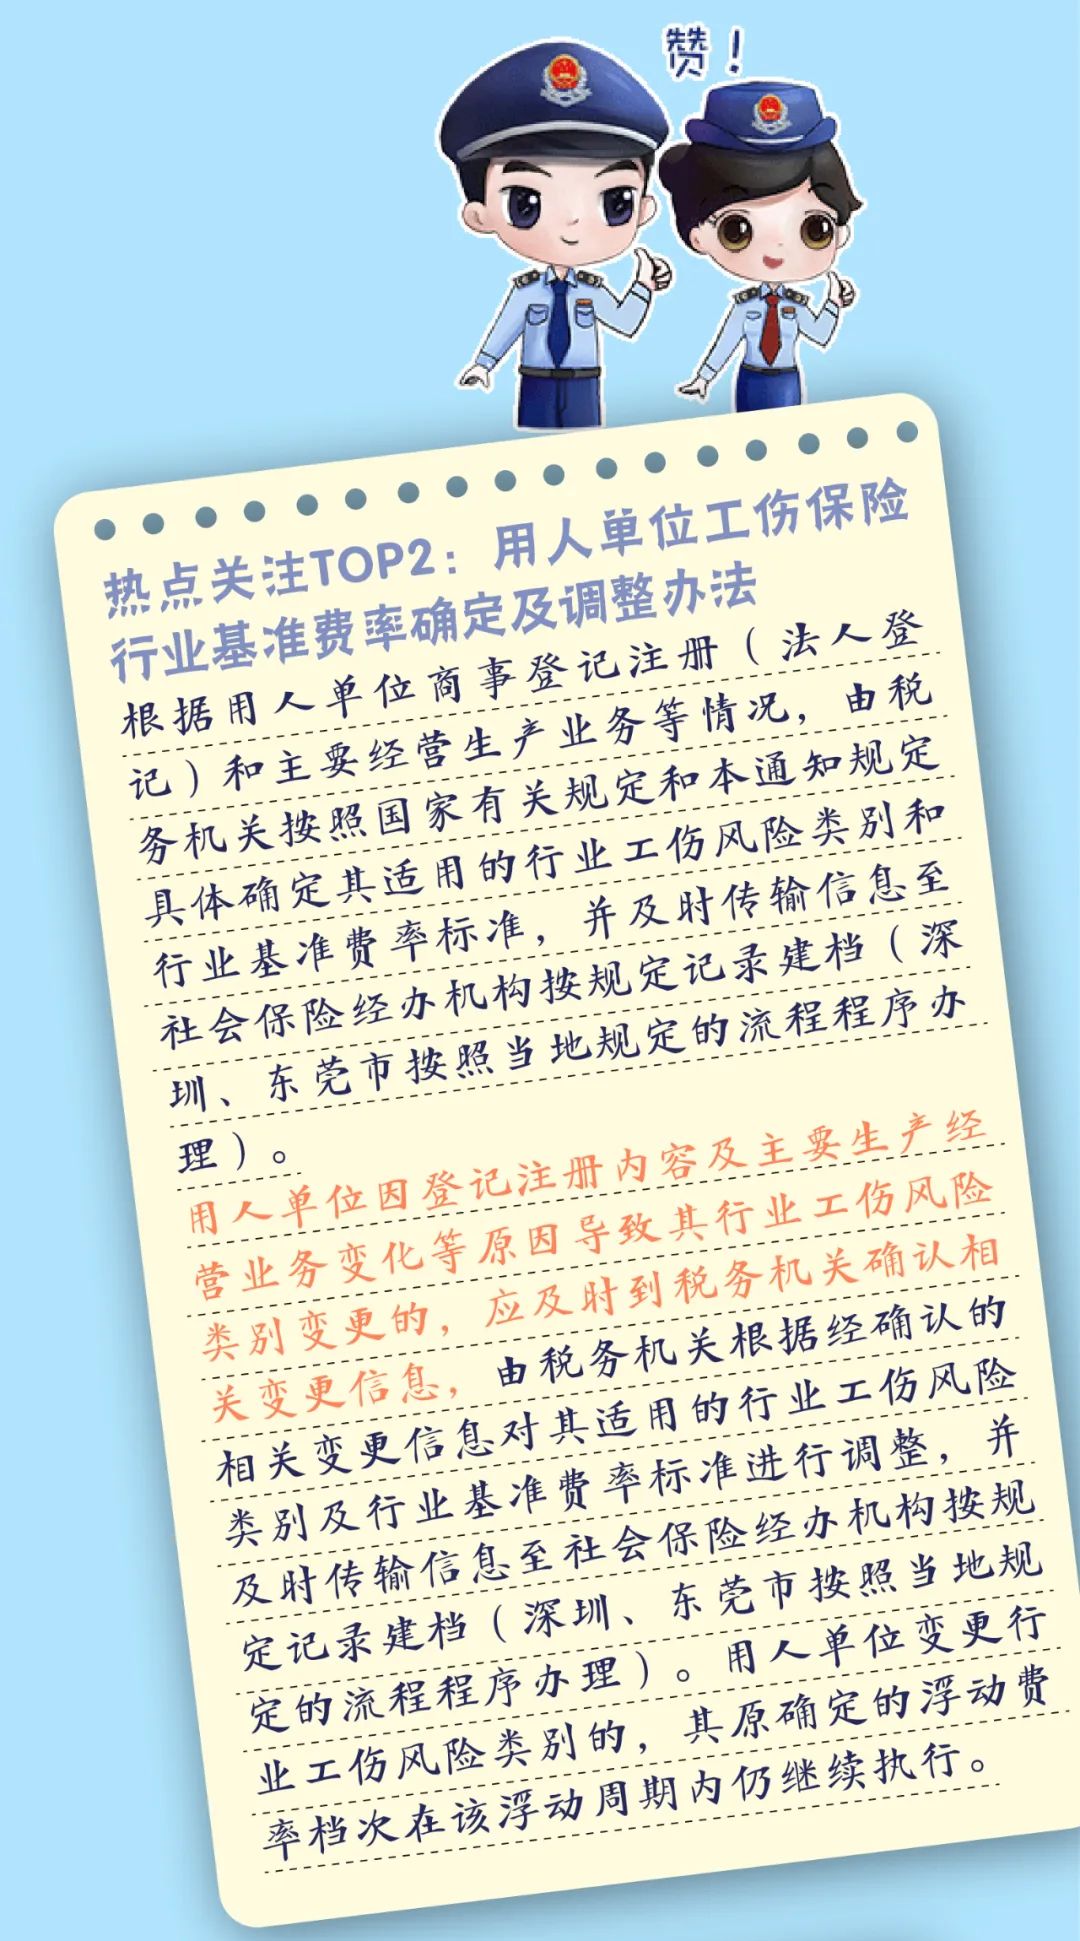 赞！
热点关注TOP2：用人单位工伤保险
行业基准费率确定及调整办法
根据用人单位商事登记注册（法人登
记）和主要经营生产业务等情况，由税
务机关按照国家有关规定和本通知规定
具体确定其适用的行业工伤风险类别和
行业基准费率标准，并及时传输信息至
社会保险经办机构按规定记录建档（深
圳、东莞市按照当地规定的流程程序办
理）。
用人单位因登记注册内容及主要生产经
营业务变化等原因导致其行业工伤风险
类别变更的，应及时到税务机关确认相
关变更信息，由税务机关根据经确认的
相关变更信息对其适用的行业工伤风险
类别及行业基准费率标准进行调整，并
及时传输信息至社会保险经办机构按规
定记录建档（深圳、东莞市按照当地规
定的流程程序办理）。用人单位变更行
业工伤风险类别的，其原确定的浮动费
率档次在该浮动周期内仍继续执行。